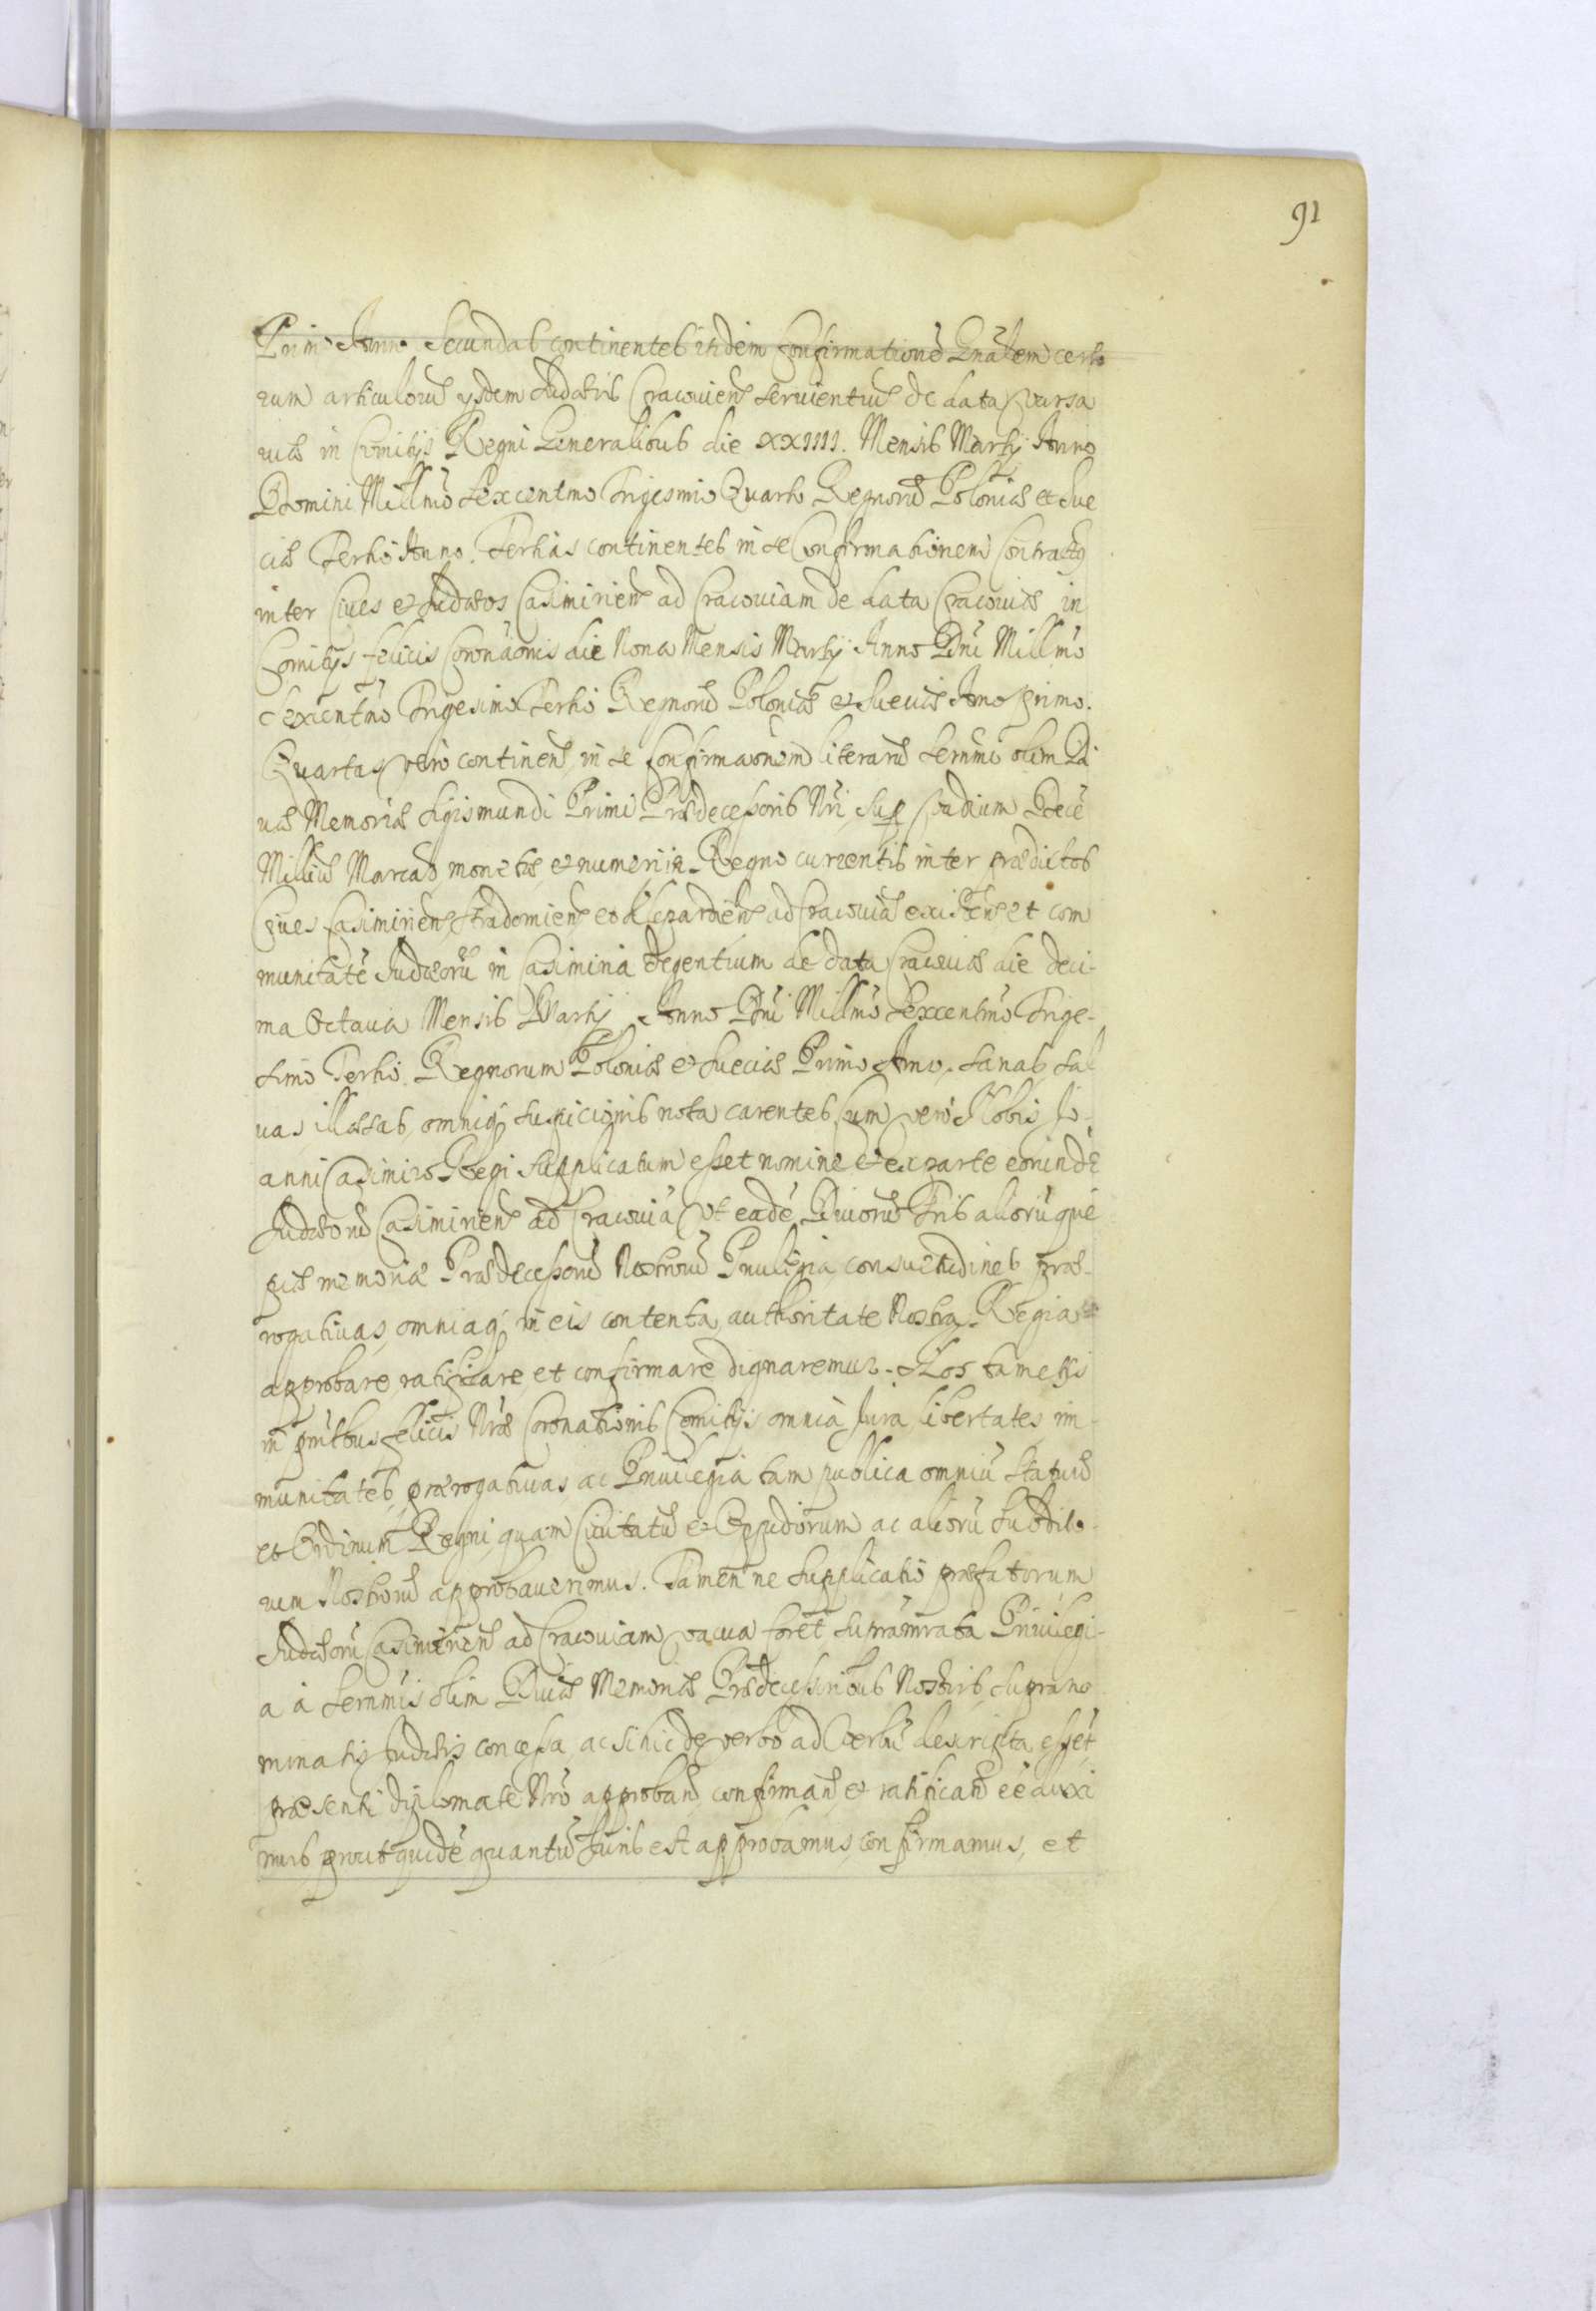 91
Primo Anno. Secundas continentes itidem confirmationē Gnãlem certo
rum articulorū ysdem Judæis Cracouien̄ seruientiū de data Varsa
uiæ in Comitijs Regni Generalibus die XXIIII. Mensis Martij Anno
Domini Millmō Sexcentmo Trigesmio Quarto Regnorū Poloniæ et Sue
ciæ Tertio Anno. Tertias continentes in se Confirmationem Contractꝯ
inter Ciues et Judæos Casimirien̄ ad Cracouiam de data Cracouiæ in
Comitijs felicis Coronãonis die Nona Mensis Martij Anno Dni Millmō
Sexcentmō Trigesimo Tertio Regnorū Poloniæ et Sueciæ Anno primo.
Quartas vero continen̄ in se Confirmãonem literarū Sernmi olim Di
uæ Memoriæ Sigismundi Primi Prædecessoris Nri, Sup Vadium Decē
Milliū Marcarū monetæ et numeri in Regno currentis inter prædictos
Ciues Casimirien̄ Stradomien̄ et Kleparðien̄ ad Cracouiã existen̄ et com
munitatē Judæorū in Casimiria degentium de data Cracouiæ die deci-
ma Octaua Mensis Martij Anno Dni Millmō Sexcentmō Trige-
simo Tertio. Regnorum Poloniæ et Sueciæ Primo Anno. Sanas, Sal
uas illæsas, omniq̨ suspicionis nota carentes, Cum vero Nobis Jo-
anni Casimiro Regi Supplicatum esset nomine et ex parte eorundē
Judæorū Casimirien̄ ad Cracouiã Vt eadē Diuorū Fris aliorūque
piæ memoriæ Prædecessorū Nostrorū Priuilegia, consuetudines præ-
rogatiuas, omniaq̨ in eis contenta, authoritate Nostra Regia
approbare, ratificare, et confirmare dignaremur. Nos tametsi
in pñtibus felicis Nræ Coronationis Comitijs omnia Jura, libertates, im-
munitates, prærogatiuas, ac Priuilegia tam publica omniū Statuū
et Ordinum Regni, quam Ciuitatū et Oppidorum ac aliorū Subdito-
rum Nostrorū approbauerimus. Tamen ne Supplicatio præfatorum
Judæorū Casimirien̄ ad Cracouiam vacua foret supranrata Priuilegi-
a à Sernmis olim Diuæ Memoriæ Prædecessoribus Nostris, supra no-
minatis Judæis concessa, ac si hic de verbo ad Verbū descripta essēt,
præsenti diplomate Nro approban̄, confirman̄ et ratifican̄ eē duxi
mus, prout quidē quantū Juris est approbamus, confirmamus, et